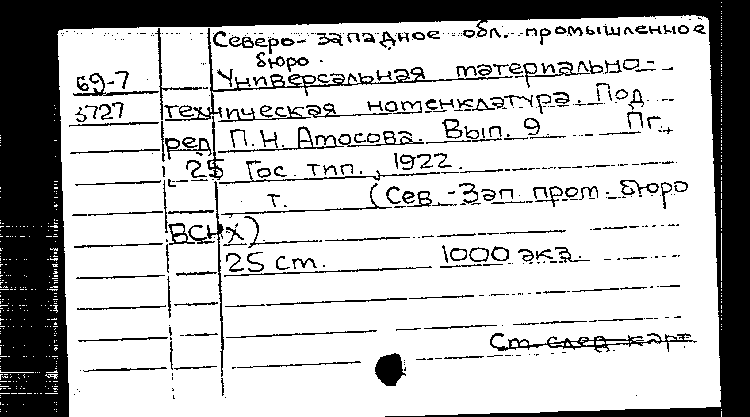 Северо-западное обл. промышленное
бюро.
69-7 Универсальная материально-
5727 техническая номенклатура. Под
ред. П.Н. Амосова. Вып. 9 Пг.,
25 Гос. тип., 1922.
т. (Сев.-Зап. пром. бюро
ВСНХ)
25 ст. 1000 экз.
Ст. след. карт